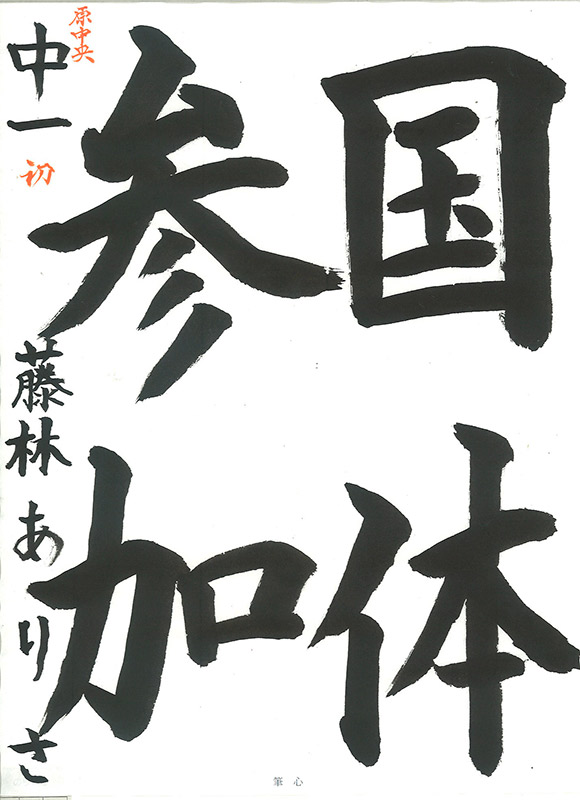 国体
参加
原中央
中一
初
藤林ありさ
心筆